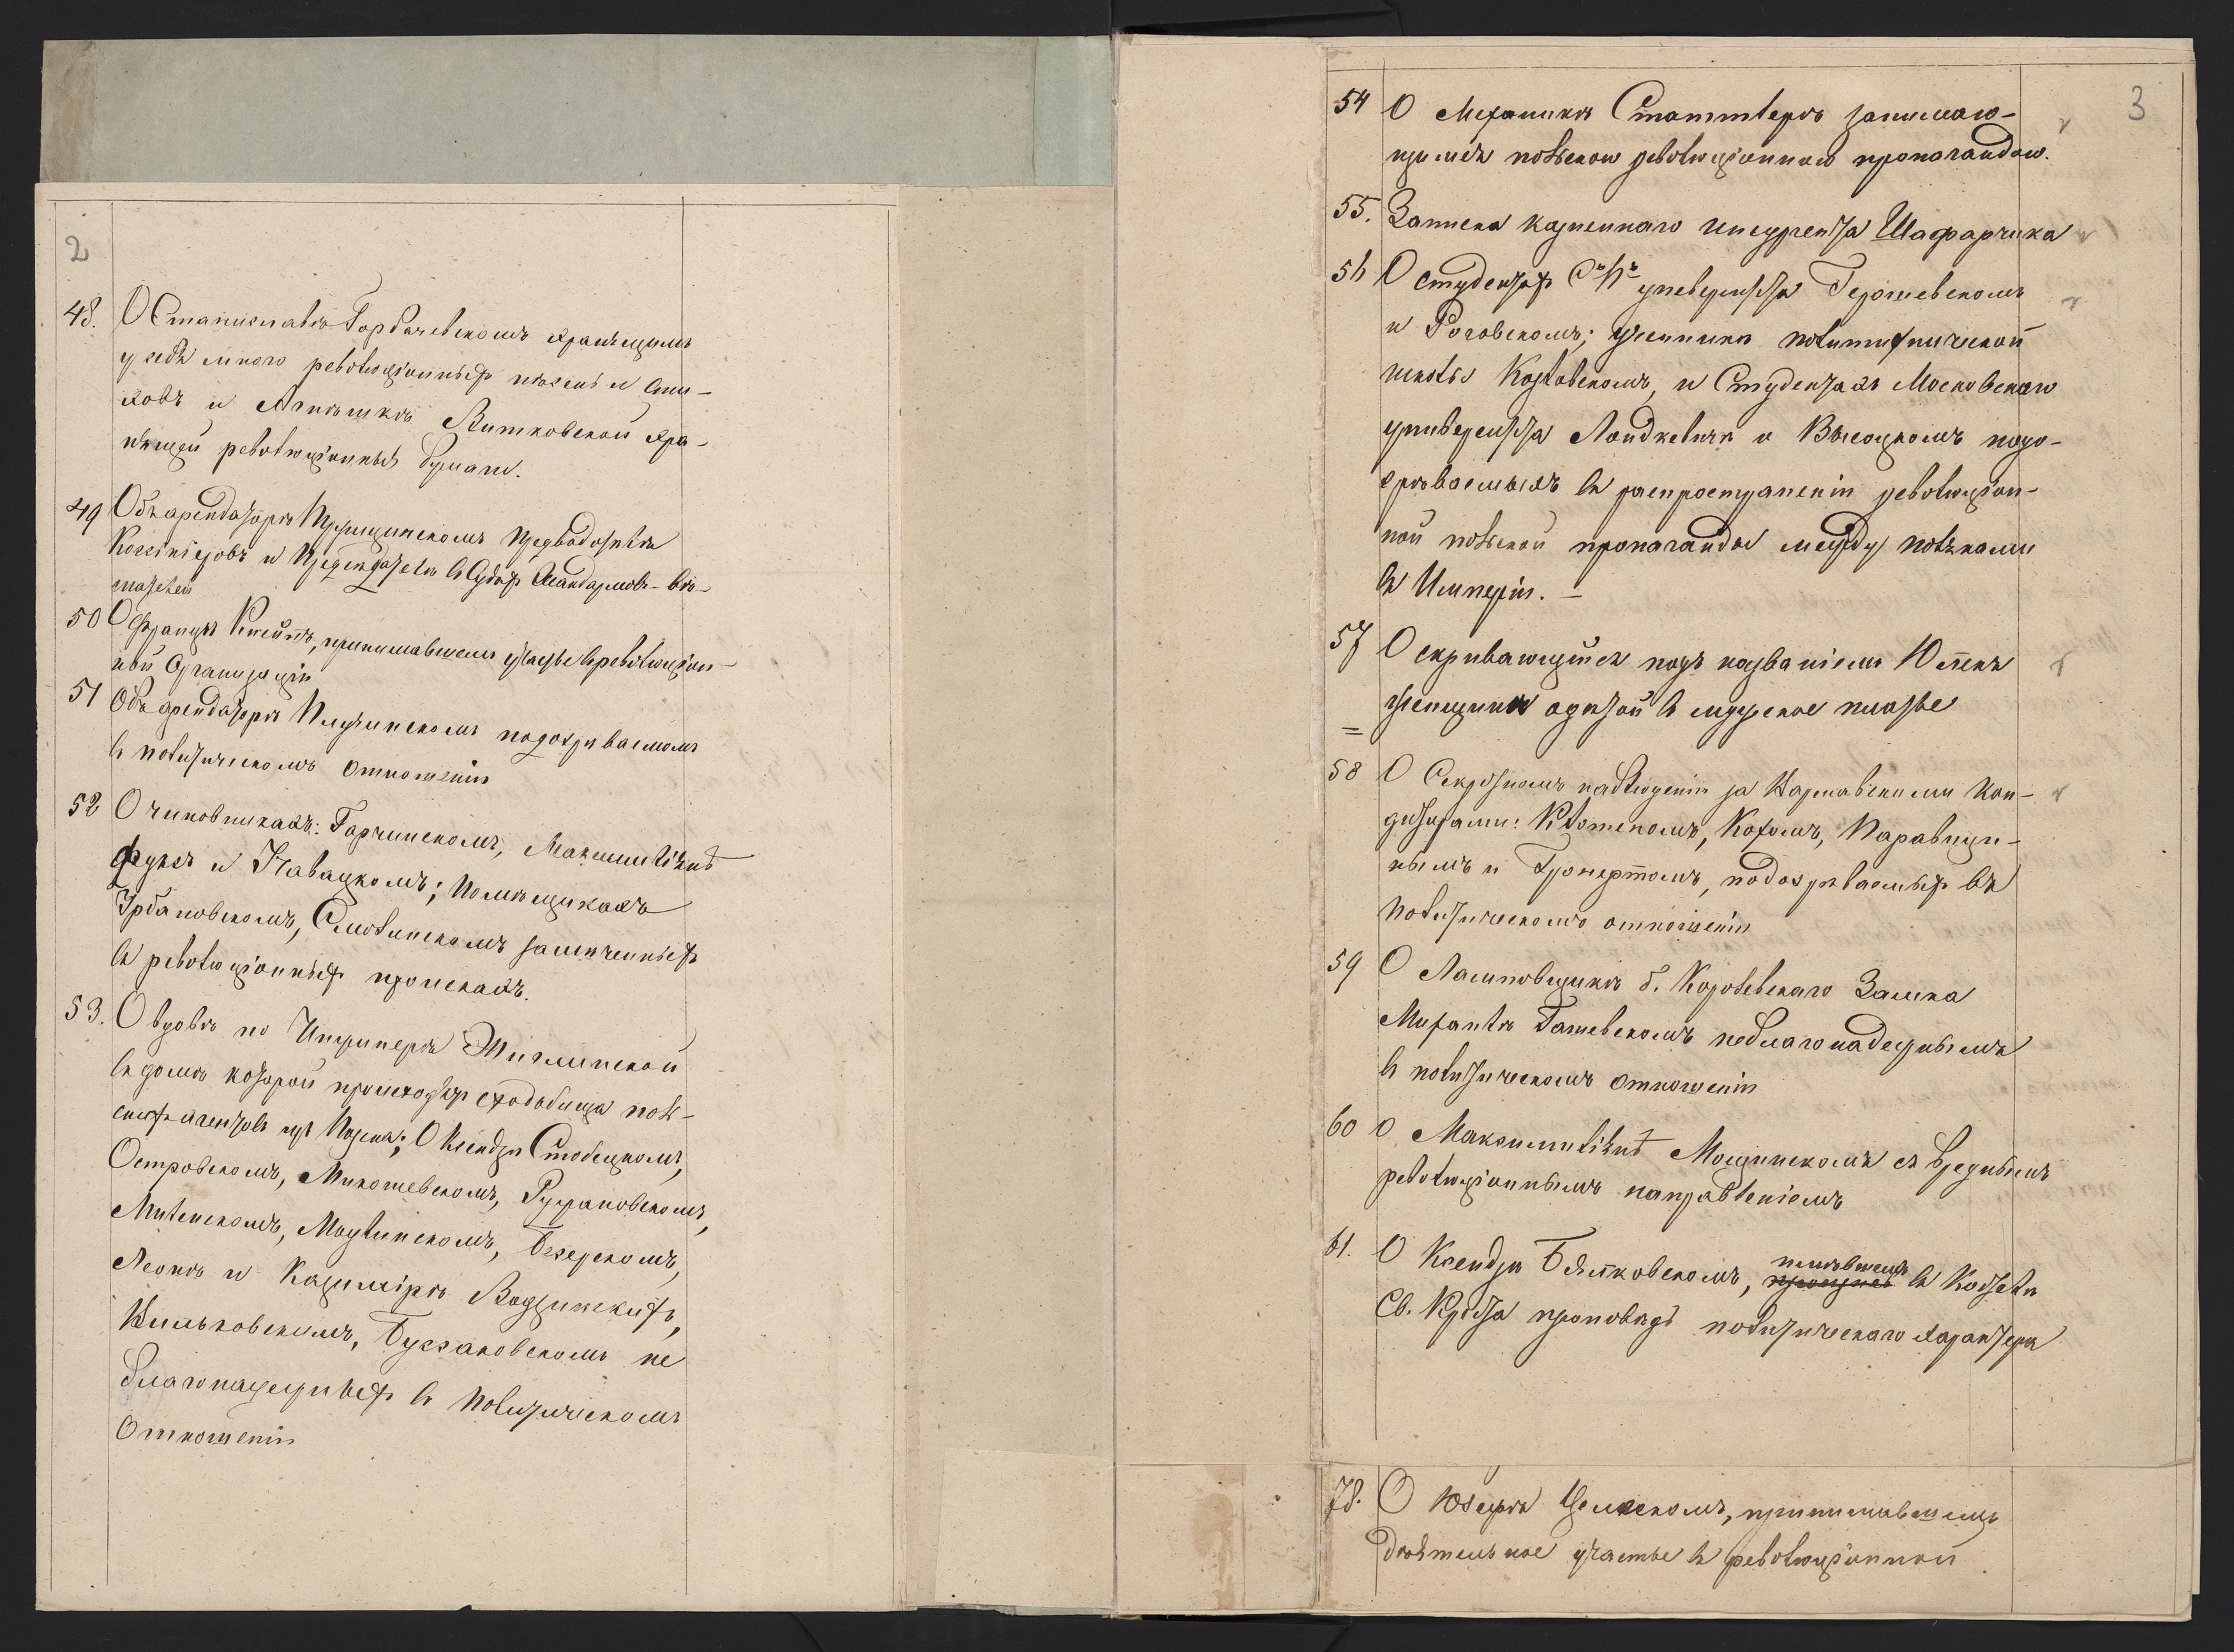 2
48. О Станиславѣ Горбачевскомъ хранящемъ
у себя много революціонныхъ пѣсень и сти-
ховъ и Агнѣшкѣ Витковской хра-
нящей революціонныя бумаги.
49 Объ арендаторѣ предводителѣ
Коссинiеровъ и въ Жандармовъ-вѣ-
шателей
50 О Францѣ принимавшемъ участье въ революціон-
ной Организаціи
51 Объ арендаторѣ подозрѣваемомъ
въ политическомъ отношеніи
52 О чиновникахъ: Горчинскомъ, Максимиліанѣ
Фуксъ и Главацкомъ; Помѣщикахъ
Урбановскомъ, Смолинскомъ замѣченныхъ
въ революціонныхъ проискахъ.
53. О вдовѣ по Инженерѣ Жиглинской
въ домѣ которой происходятъ сходбища поль-
скихъ агентовъ изъ О Ксендзѣ Стобецкомъ,
Островскомъ, Микошевскомъ,
Милескомъ,
Леонѣ и Казимірѣ Водзинскихъ,
не
благонадежныхъ въ Политическомъ
Отношеніи
3
54 О Механикѣ занимаю-
щимся польскою революціонною пропагандою.
55. Записка казненнаго инсургента Шафарчика
56 О студентахъ С. П. университета Герошевскомъ
и Роговскомъ; ученикѣ политехнической
школы Козловскомъ, и Студентахъ Московскаго
университета Ландкевичѣ и Высоцкомъ подо-
зрѣваемыхъ въ распространеніи революціон-
ной польской пропаганды между поляками
въ Имперіи. –
57 О скривающійся подъ названіемъ
женщинѣ одѣтой въ мужское платье
58 О Секретномъ наблюденіи за Варшавскими Кон-
дитерами: Клотскомъ, Кохомъ,
и подозрѣваемыхъ въ
Политическомъ отношеніи
59 О Ламповщикѣ б. Королевскаго Замка
Михаилѣ Гашевскомъ неблагонадежнымъ
въ политическомъ отношеніи
60 О Максимиліанѣ Мощинскомъ съ вреднымъ
революціоннымъ направленіемъ
61. О Ксендзѣ Бялковскомъ, имѣвшемъ въ Костелѣ
Св. Креста проповѣдь политическаго характера
78. О Юзефѣ принимавшемъ
дѣятельное участье въ революціонной